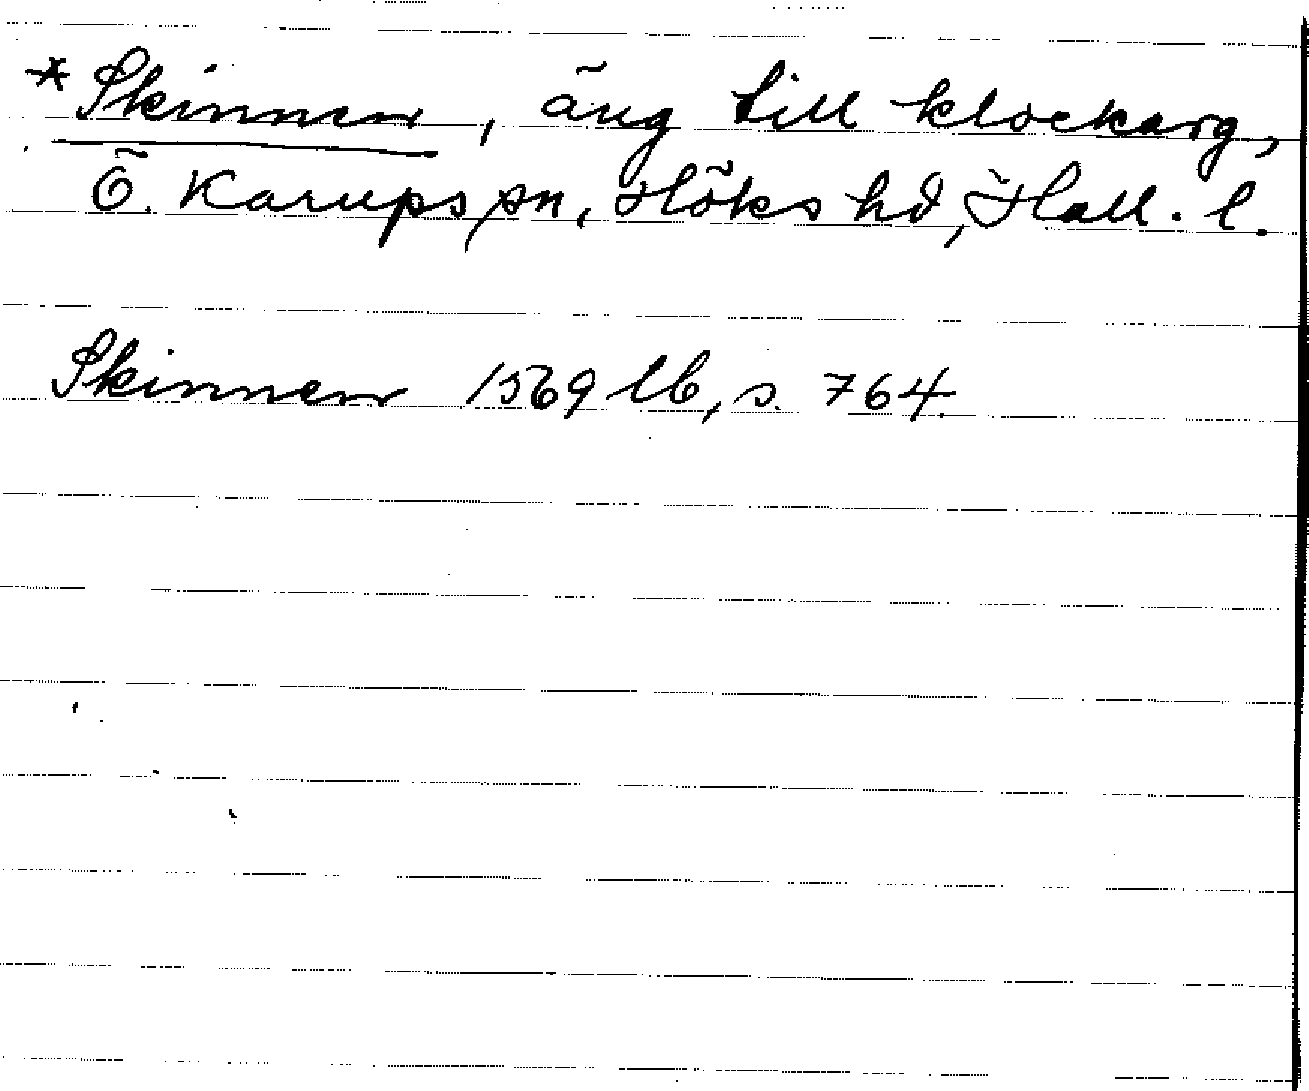 *Skinnen, äng till klockarg,
Ö. Karups sn, Höks hd, Hall. l.
Skinnen 1569 lb, s. 764.